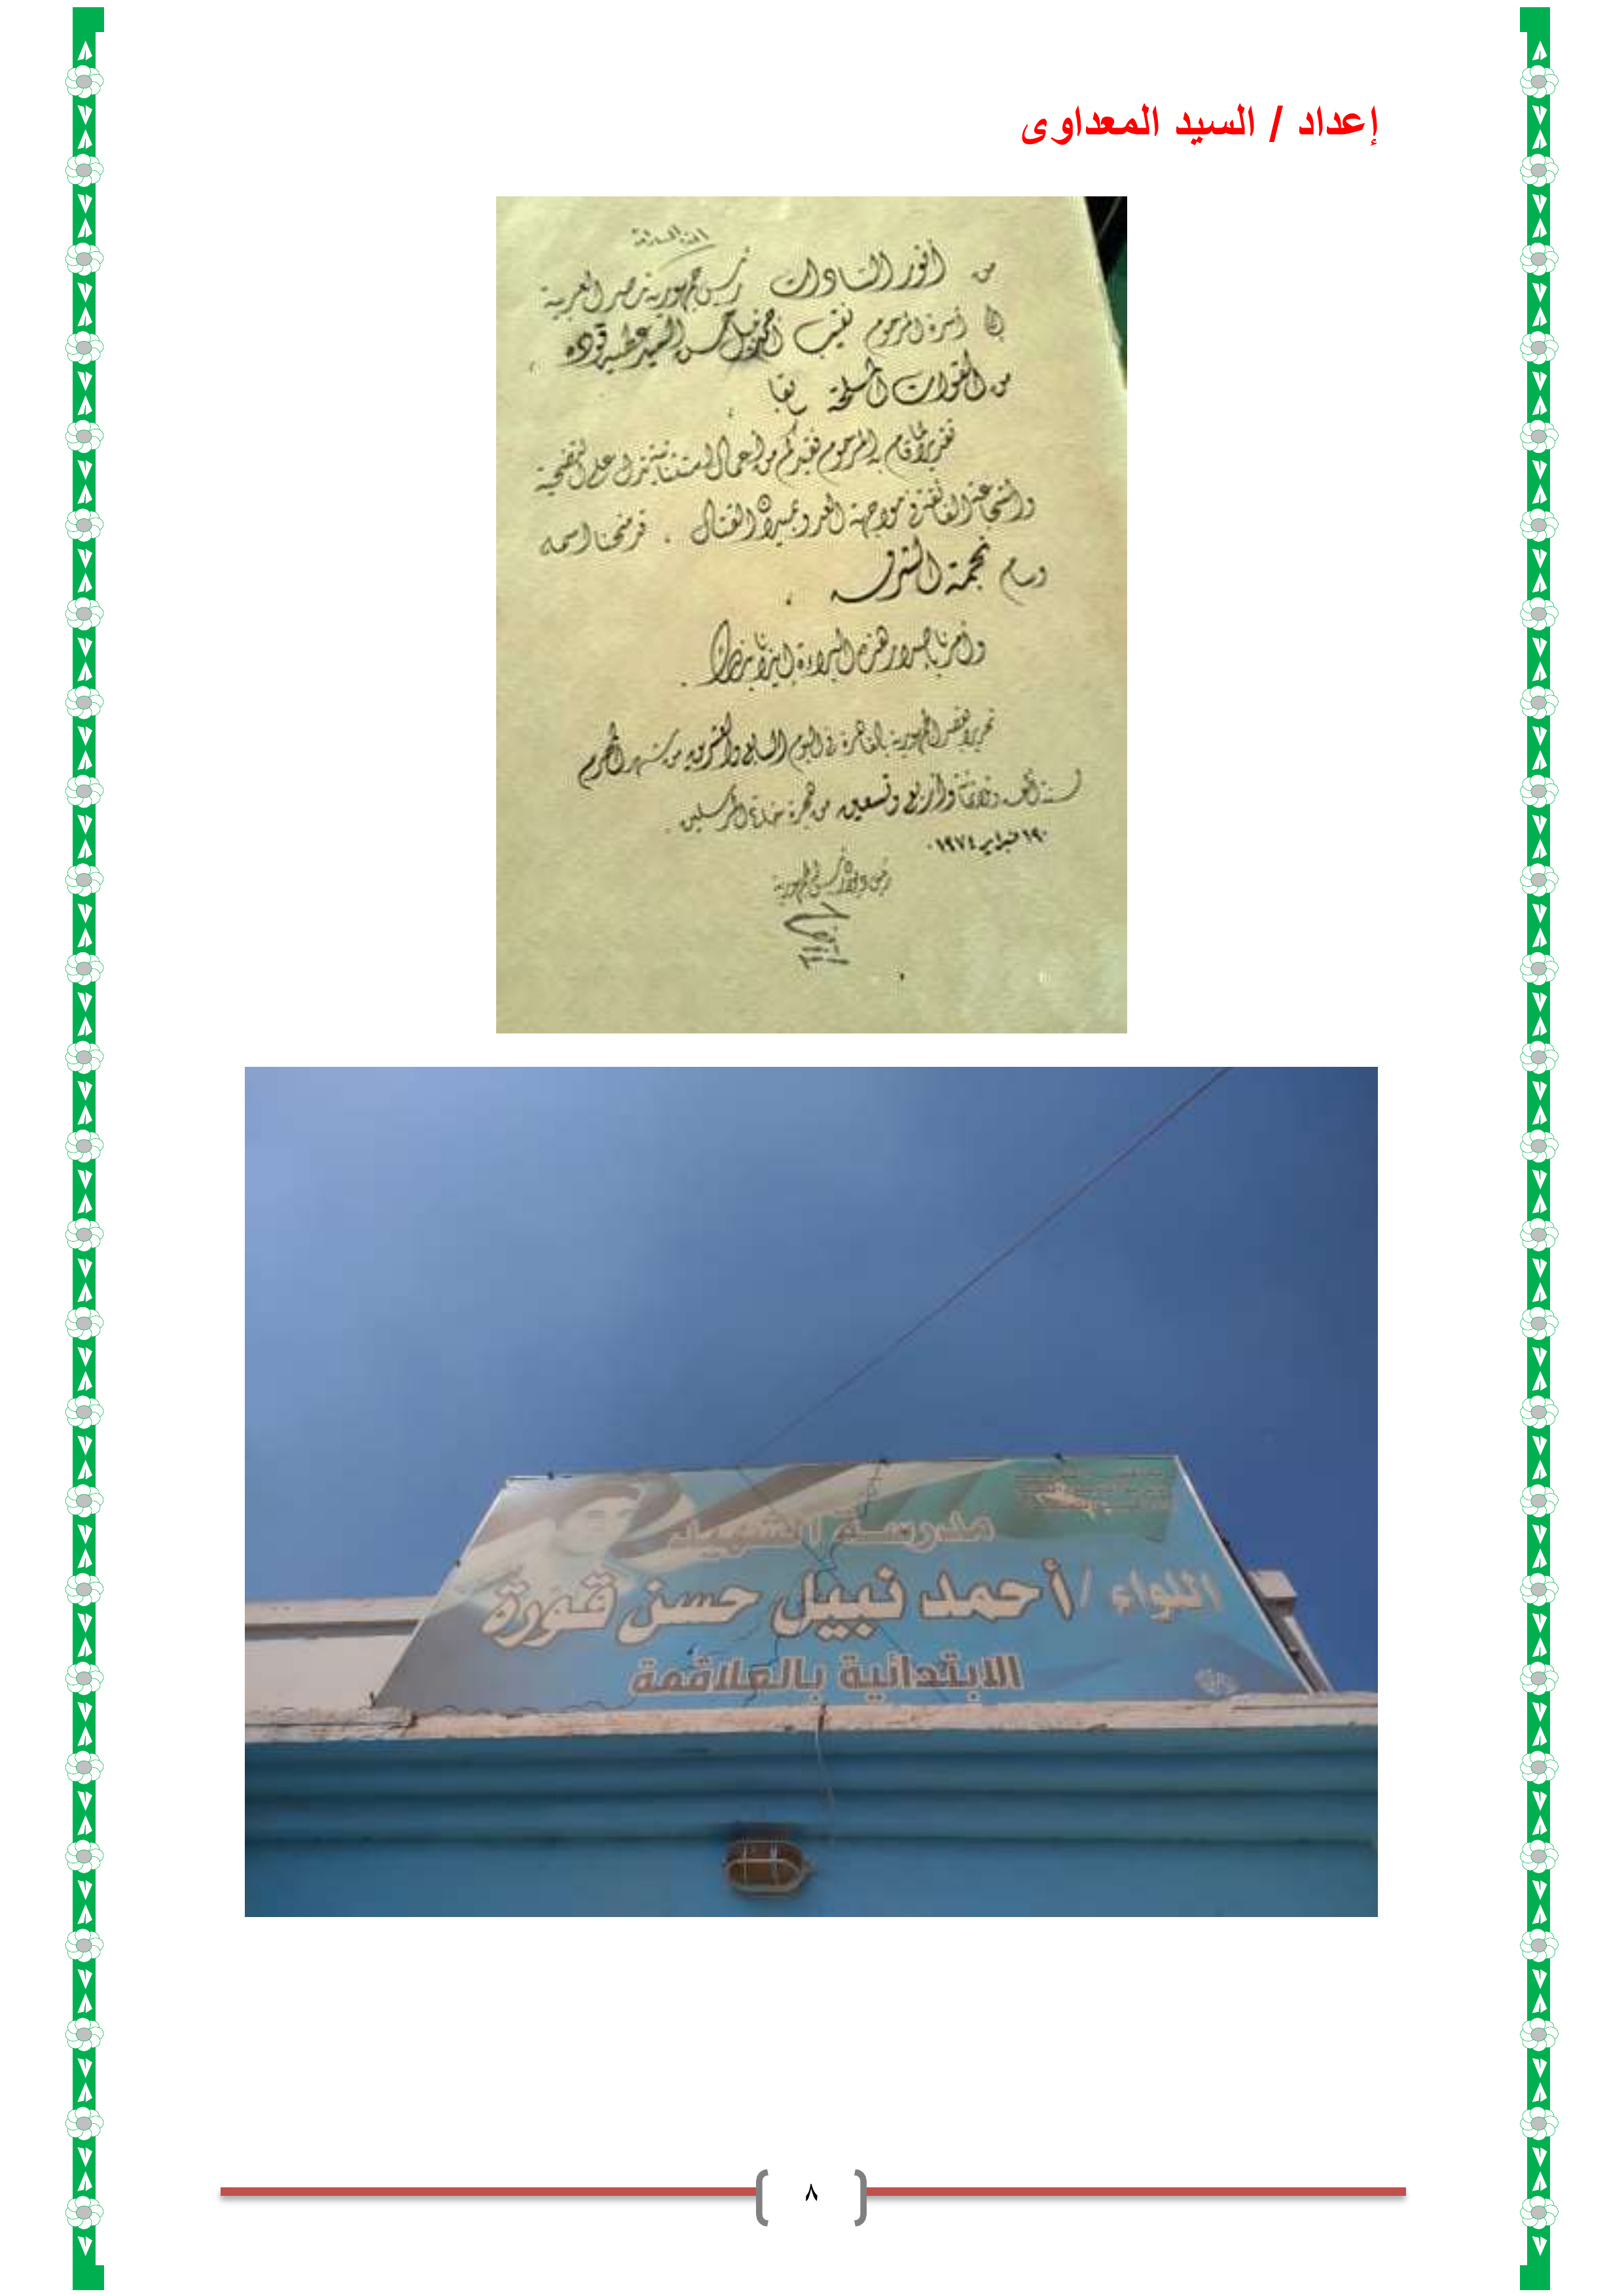 إعداد / السيد المعداوى
من أنور السادات رئيس جمهورية مصر العربية
إلى أسرة المرحوم نقيب أحمد نبيل حسن السيد عطيه قوده
من القوات المسلحة سابقا
تقديرا لما قام به المرحوم فقيدكم من أعمال استثنائية تدل على التضحية
والشجاعة الفائقة في مواجهة العدو بميدان القتال . قد منحنا اسمه
وسام نجمة الشرف
وأمرنا بإصدار هذه البراءة إيذانا بذلك .
تحريرا بقصر الجمهورية بالقاهرة في اليوم السابع والعشرين من شهر المحرم
لسنة ألف وثلاثمائة وأربع وتسعين من هجرة خاتم المرسلين .
١٩ فبراير ١٩٧٤
مدرسة الشهيد
اللواء / أحمد نبيل حسن قورة
الابتدائية بالعلاقمة
٨